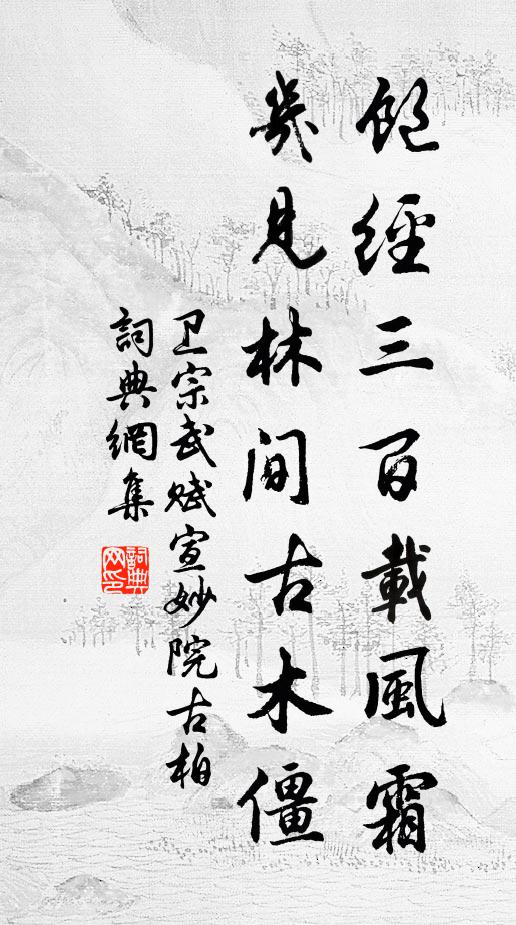 飽經三百載風霜
幾見林間古木僵
卫宗武赋宣妙院古柏
詞典網集
詞典网印